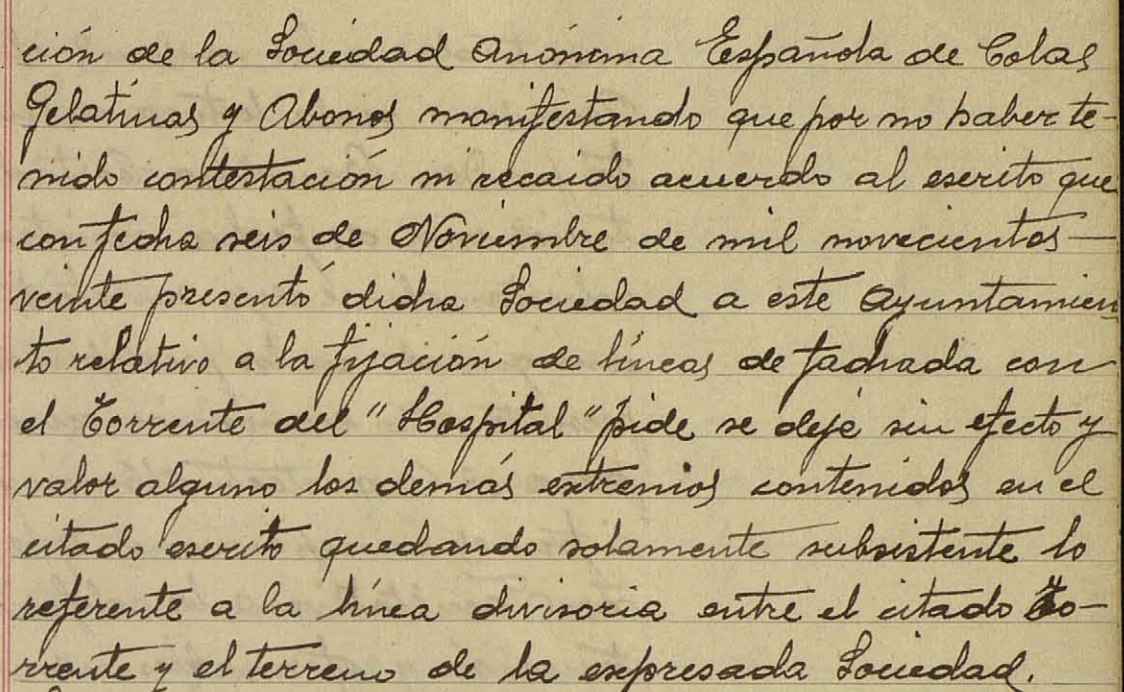 ción de la Sociedad Anónima Española de Colas
Gelatinas y Abonos manifestando que por no haber te-
nido contestación ni recaido acuerdo al escrito que
con fecha seis de Noviembre de mil novecientos—
veinte presentó dicha Sociedad a este Ayuntamien-
to relativo a la fijación de líneas de fachada con
el Torrente del "Hospital" pide se deje sin efecto y
valor alguno los demás extremos contenidos en el
citado escrito quedando solamente subsistente lo
referente a la línea divisoria entre el citado to-
rrente y el terreno de la expresada Sociedad.